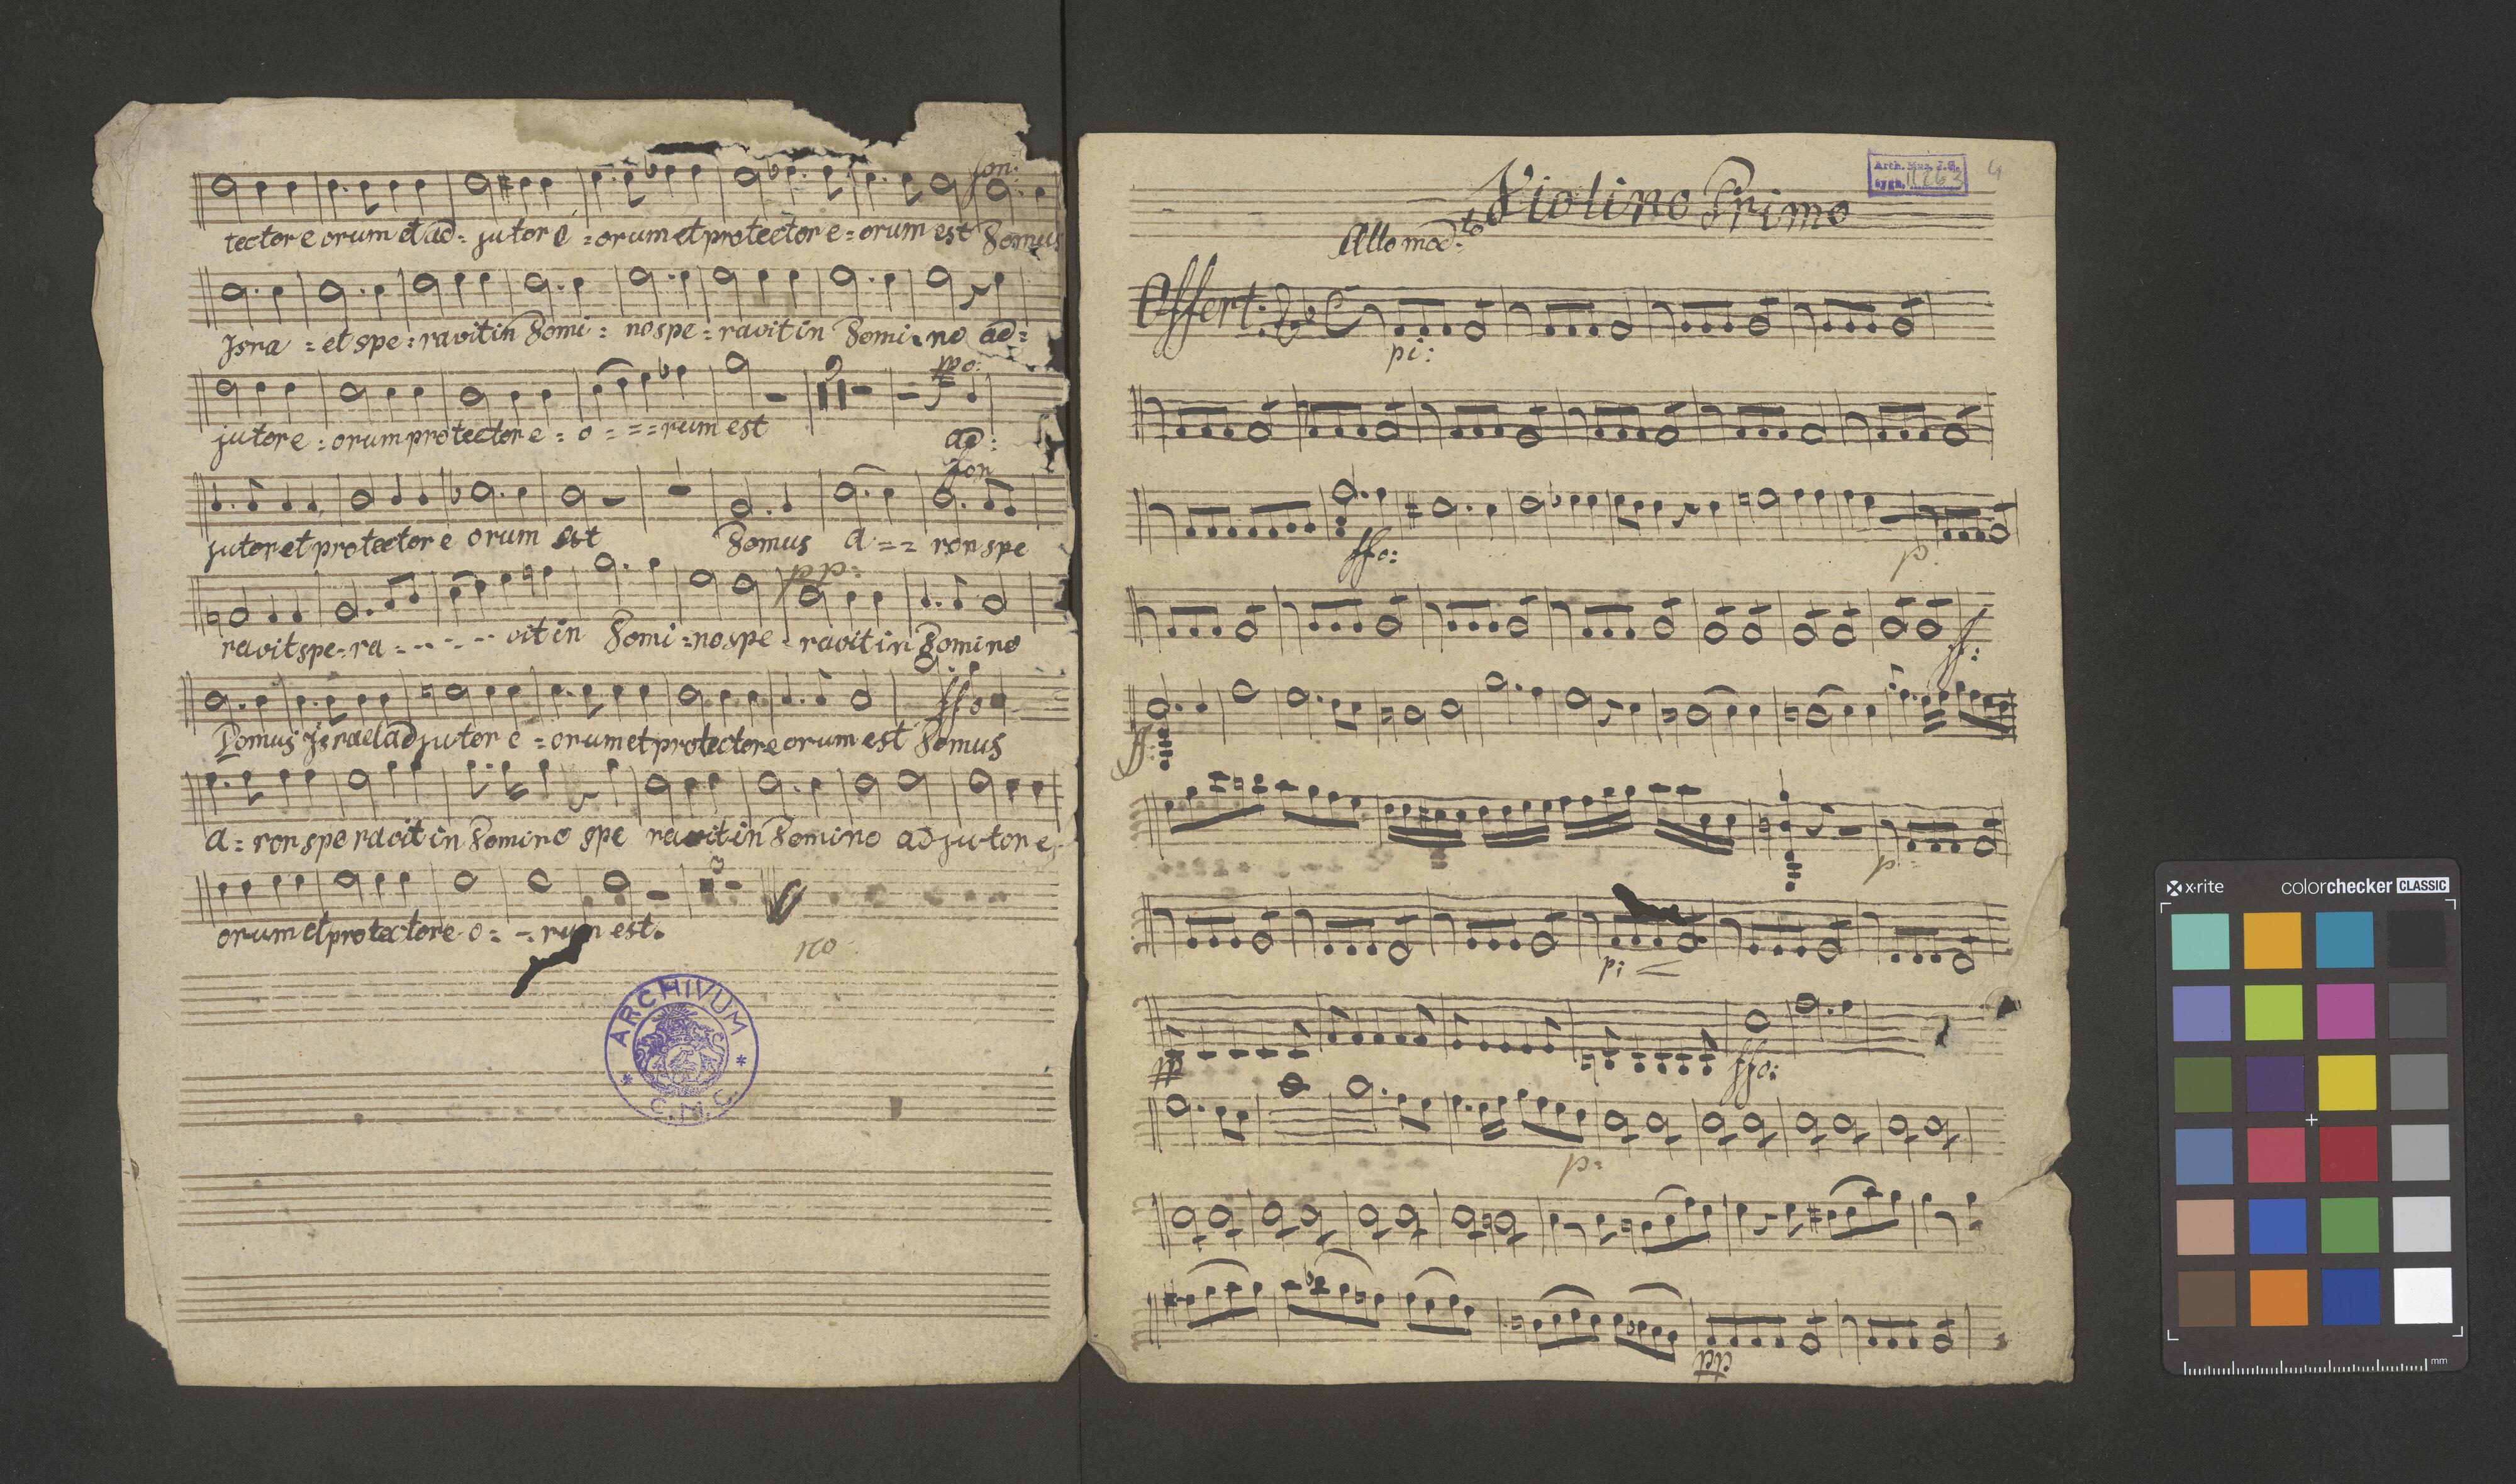 fon:
tector e orum et ad = jutor é = orum et protector e = orum est Domus
Isra = et spe = ravit in Domi = no spe = ravit in Domi = no ad =
ppo:
jutor e = orum protector e = o = = = rum est ad =
for
jutor et protector e orum est Domus A = = ron spe
pp:
ravit spe = ra = - - - - - vit in Domi = no spe = ravit in Domino
ffo
Domus Israel adjutor e = orum et protector e orum est Domus
A = ron speravit in Domino spe ravit in Domino adjutor e
orum et protector e o = - = rum est.
ARCHIVUM
C.M.C.
Violino Primo
Arch. Mus. J.G.
sygn.
4
Allo mod:to
Offert:
pi:
ffo:
p.
ff:
ff:
p:
pi
pp
ffo:
p:
pp
x-rite
colorchecker CLASSIC
mm